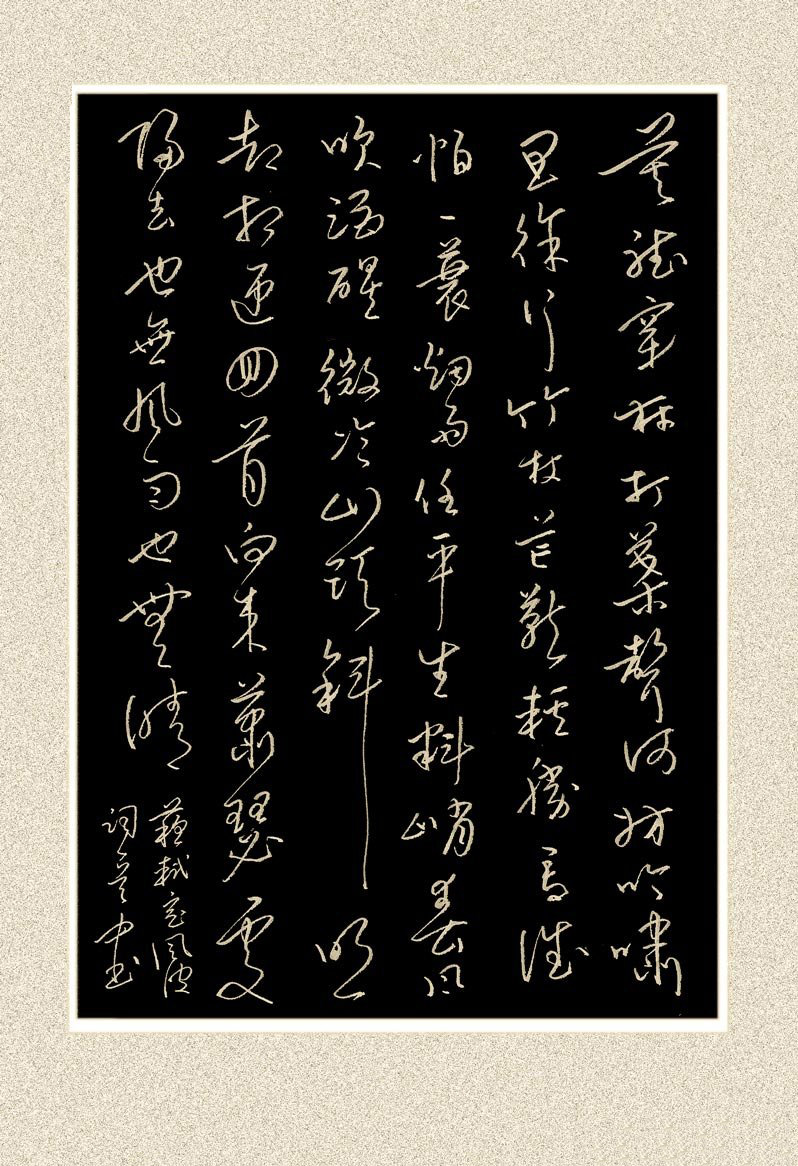 莫聽穿林打葉聲何妨吟嘯
且徐行竹杖芒鞋輕勝馬誰
怕一蓑烟雨任平生料峭春風
吹酒醒微冷山頭斜照
却相迎回首向來蕭瑟處
歸去也無風雨也無晴
蘇軾定風波
詞